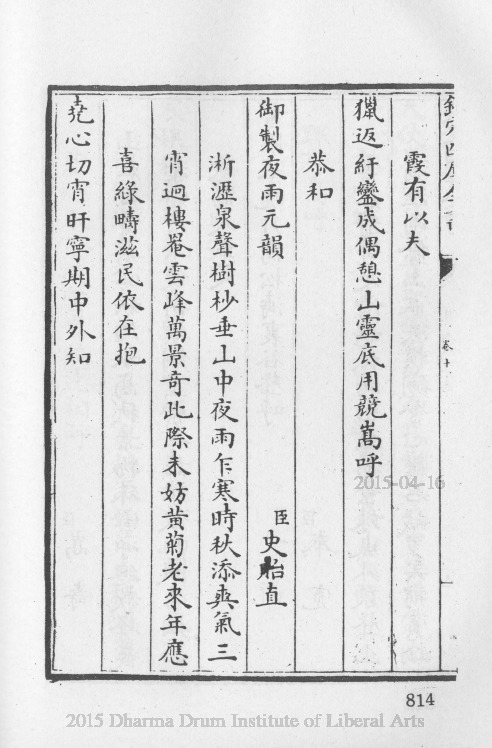 欽定四庫全書
卷十
霞有以夫
獵返紆鑾成偶憩山靈底用競嵩呼
恭和
御製夜雨元韻
臣史貽直
淅瀝泉聲樹杪垂山中夜雨乍寒時秋添爽氣三
宵迥樓菴雲峰萬景奇此際未妨黃菊老來年應
喜綠疇滋民依在抱
堯心切宵旰寧期中外知
2015-04-16
814
2015 Dharma Drum Institute of Liberal Arts